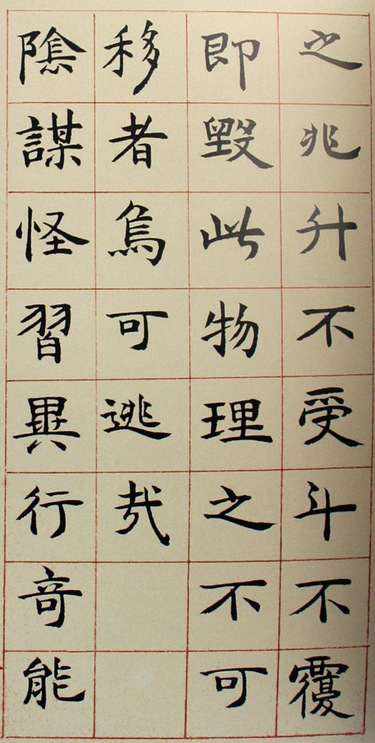 之兆升不受斗不覆
即毀此物理之不可
移者烏可逃哉
陰謀怪習異行奇能